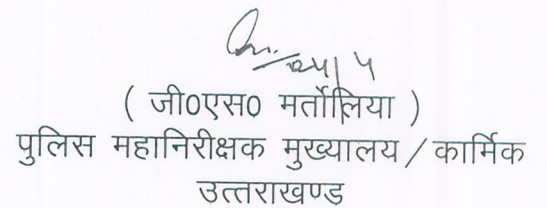 ( जी0एस0 मर्तोलिया )
पुलिस महानिरीक्षक मुख्यालय / कार्मिक
उत्तराखण्ड